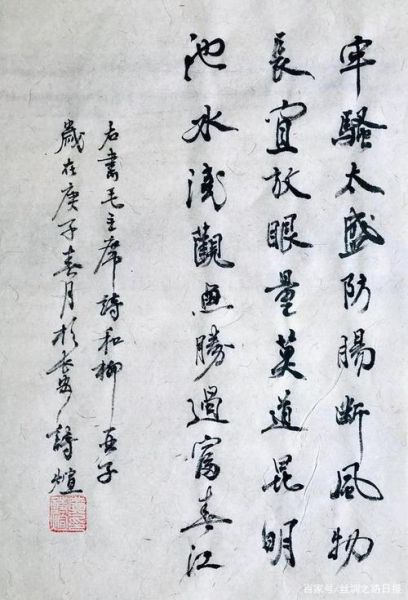 牢騷太盛防腸斷風物
長宜放眼量莫道昆明
池水淺觀魚勝過富春江
右書毛主席詩和柳亞子
歲在庚子春月於長安詩煊
百家号/丝绸之路日报